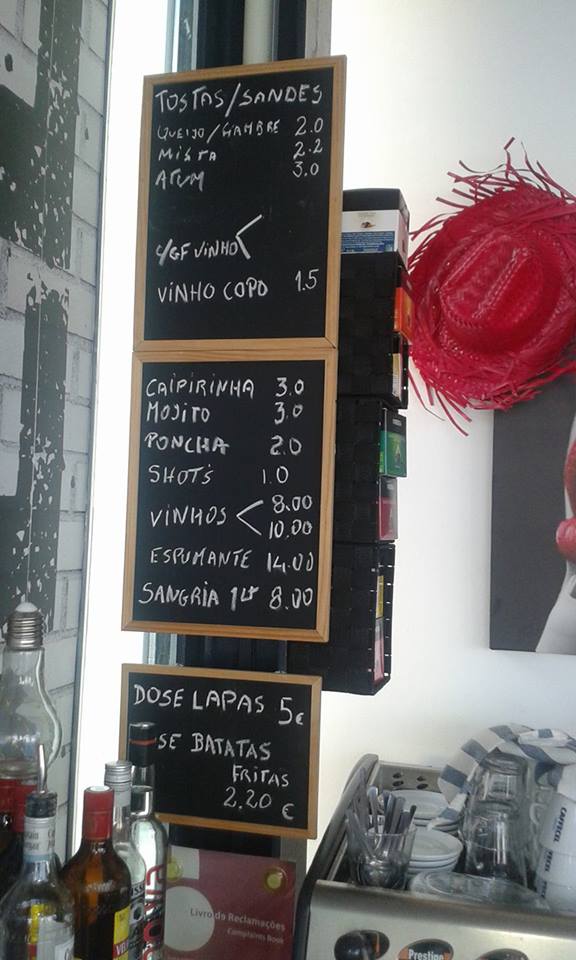 TOSTAS/SANDES
QUEIJO/FIAMBRE 2.0
MISTA 2.2
ATUM 3.0
C/GF VINHO <
VINHO COPO 1.5
CAIPIRINHA 3.0
MOJITO 3.0
PONCHA 2.0
SHOT'S 1.0
VINHOS < 8.00
10.00
ESPUMANTE 14.00
SANGRIA 1LT 8.00
DOSE LAPAS 5€
SE BATATAS
FRITAS
2.20 €
Livro de Reclamações
Complaints Book
Prestige